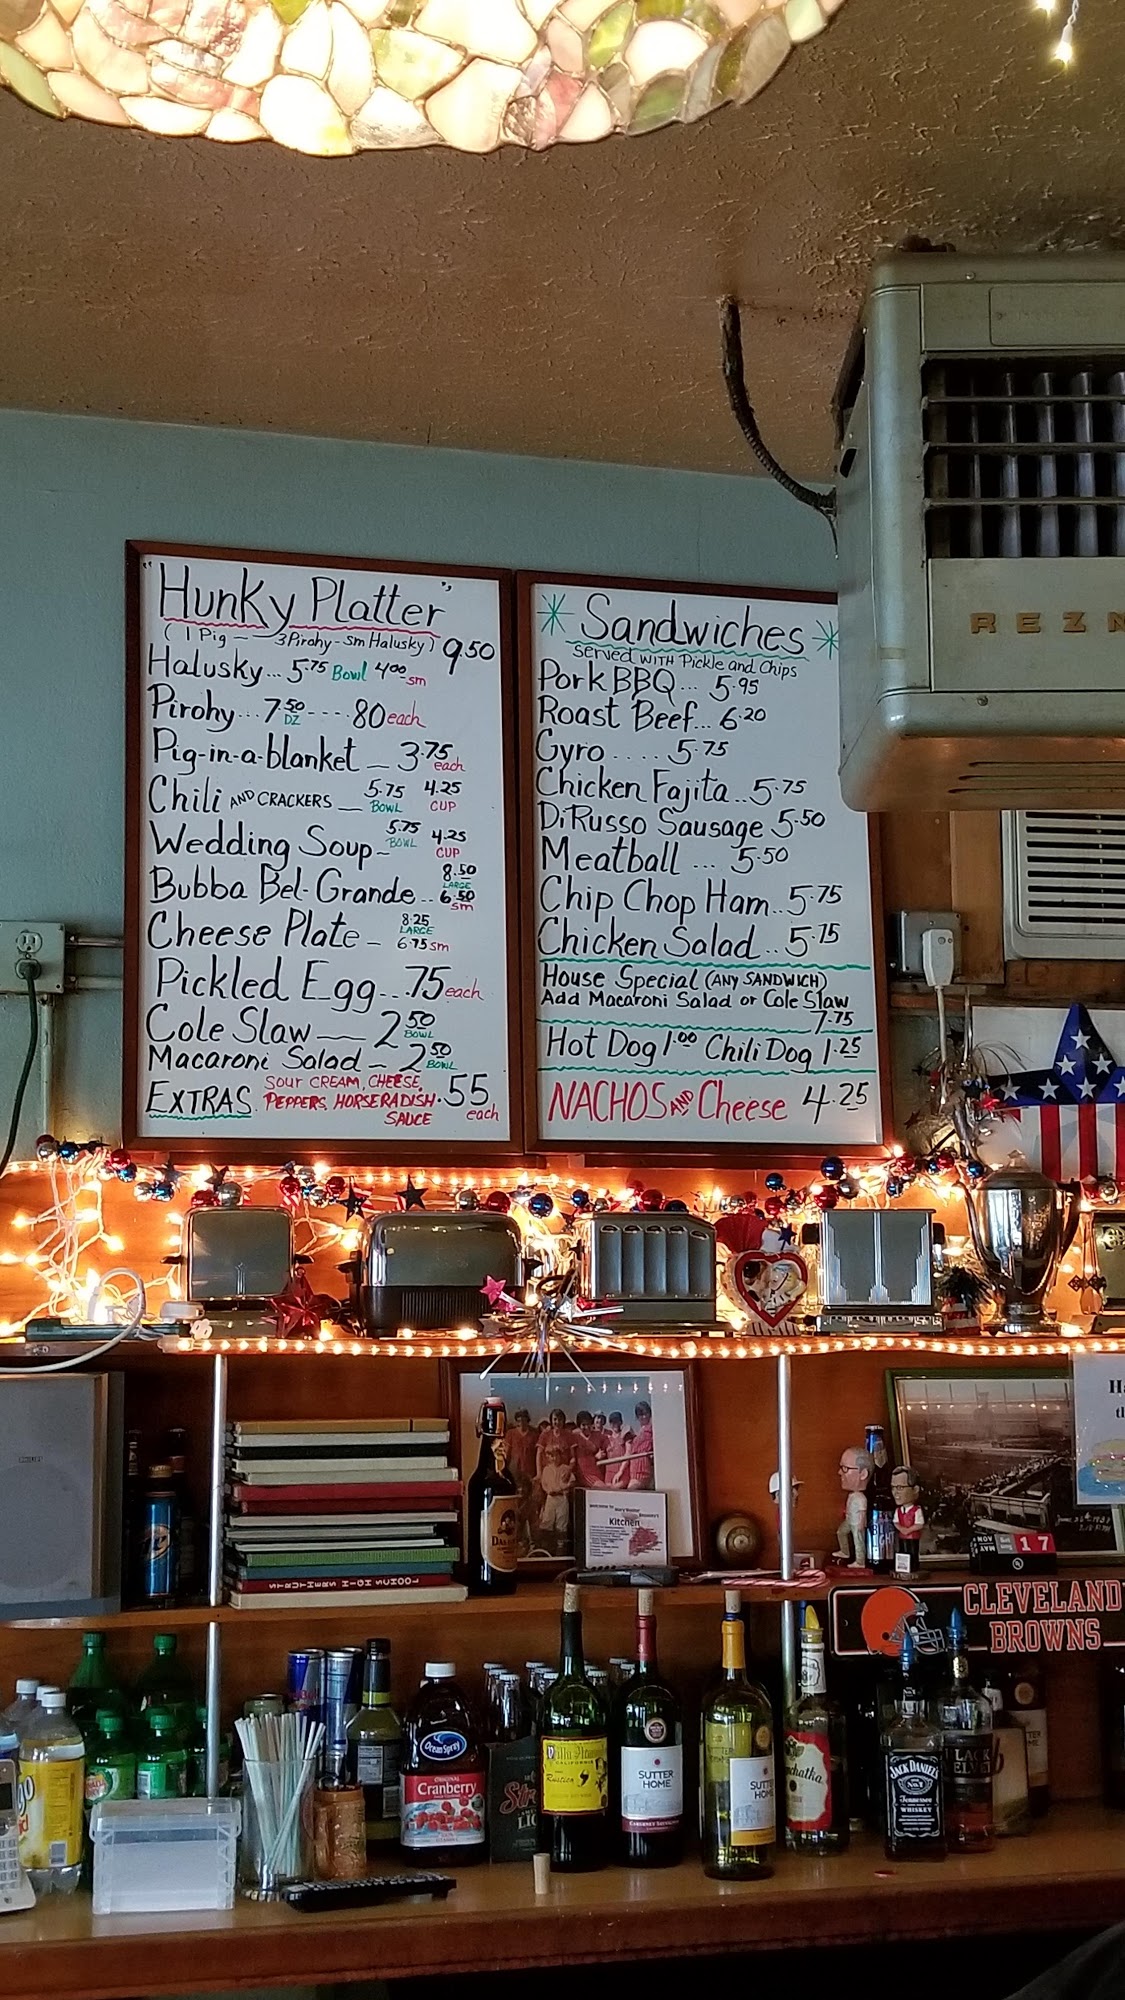 "Hunky Platter"
( 1 Pig - 3 Pirohy - sm Halusky) 9.50
Halusky... 5.75 Bowl 4.00 sm
Pirohy... 7.50 DZ ---- .80 each
Pig-in-a-blanket _ 3.75 each
Chili AND CRACKERS _ 5.75 BOWL 4.25 CUP
Wedding Soup ~ 5.75 BOWL 4.25 CUP
Bubba Bel-Grande.. 8.50 LARGE 6.50 sm
Cheese Plate - 8.25 LARGE 6.75 sm
Pickled Egg... .75 each
Cole Slaw — 2.50 BOWL
Macaroni Salad - 2.50 BOWL
EXTRAS. SOUR CREAM, CHEESE, PEPPERS, HORSERADISH SAUCE .55 each
Sandwiches
served WITH Pickle and Chips
Pork BBQ... 5.95
Roast Beef... 6.20
Gyro ..... 5.75
Chicken Fajita.. 5.75
DiRusso Sausage 5.50
Meatball ... 5.50
Chip Chop Ham.. 5.75
Chicken Salad .. 5.75
House Special (ANY SANDWICH)
Add Macaroni Salad or Cole Slaw
7.75
Hot Dog 1.00 Chili Dog 1.25
NACHOS AND Cheese 4.25
REZN
PHILIPS
STRUTHERS HIGH SCHOOL
Kitchen
NOV
17
CLEVELAND
BROWNS
Ocean Spray
Cranberry
SUTTER
HOME
CABERNET SAUVIGNON
SUTTER
HOME
JACK DANIEL'S
Tennessee
WHISKEY
BLACK
VELVET